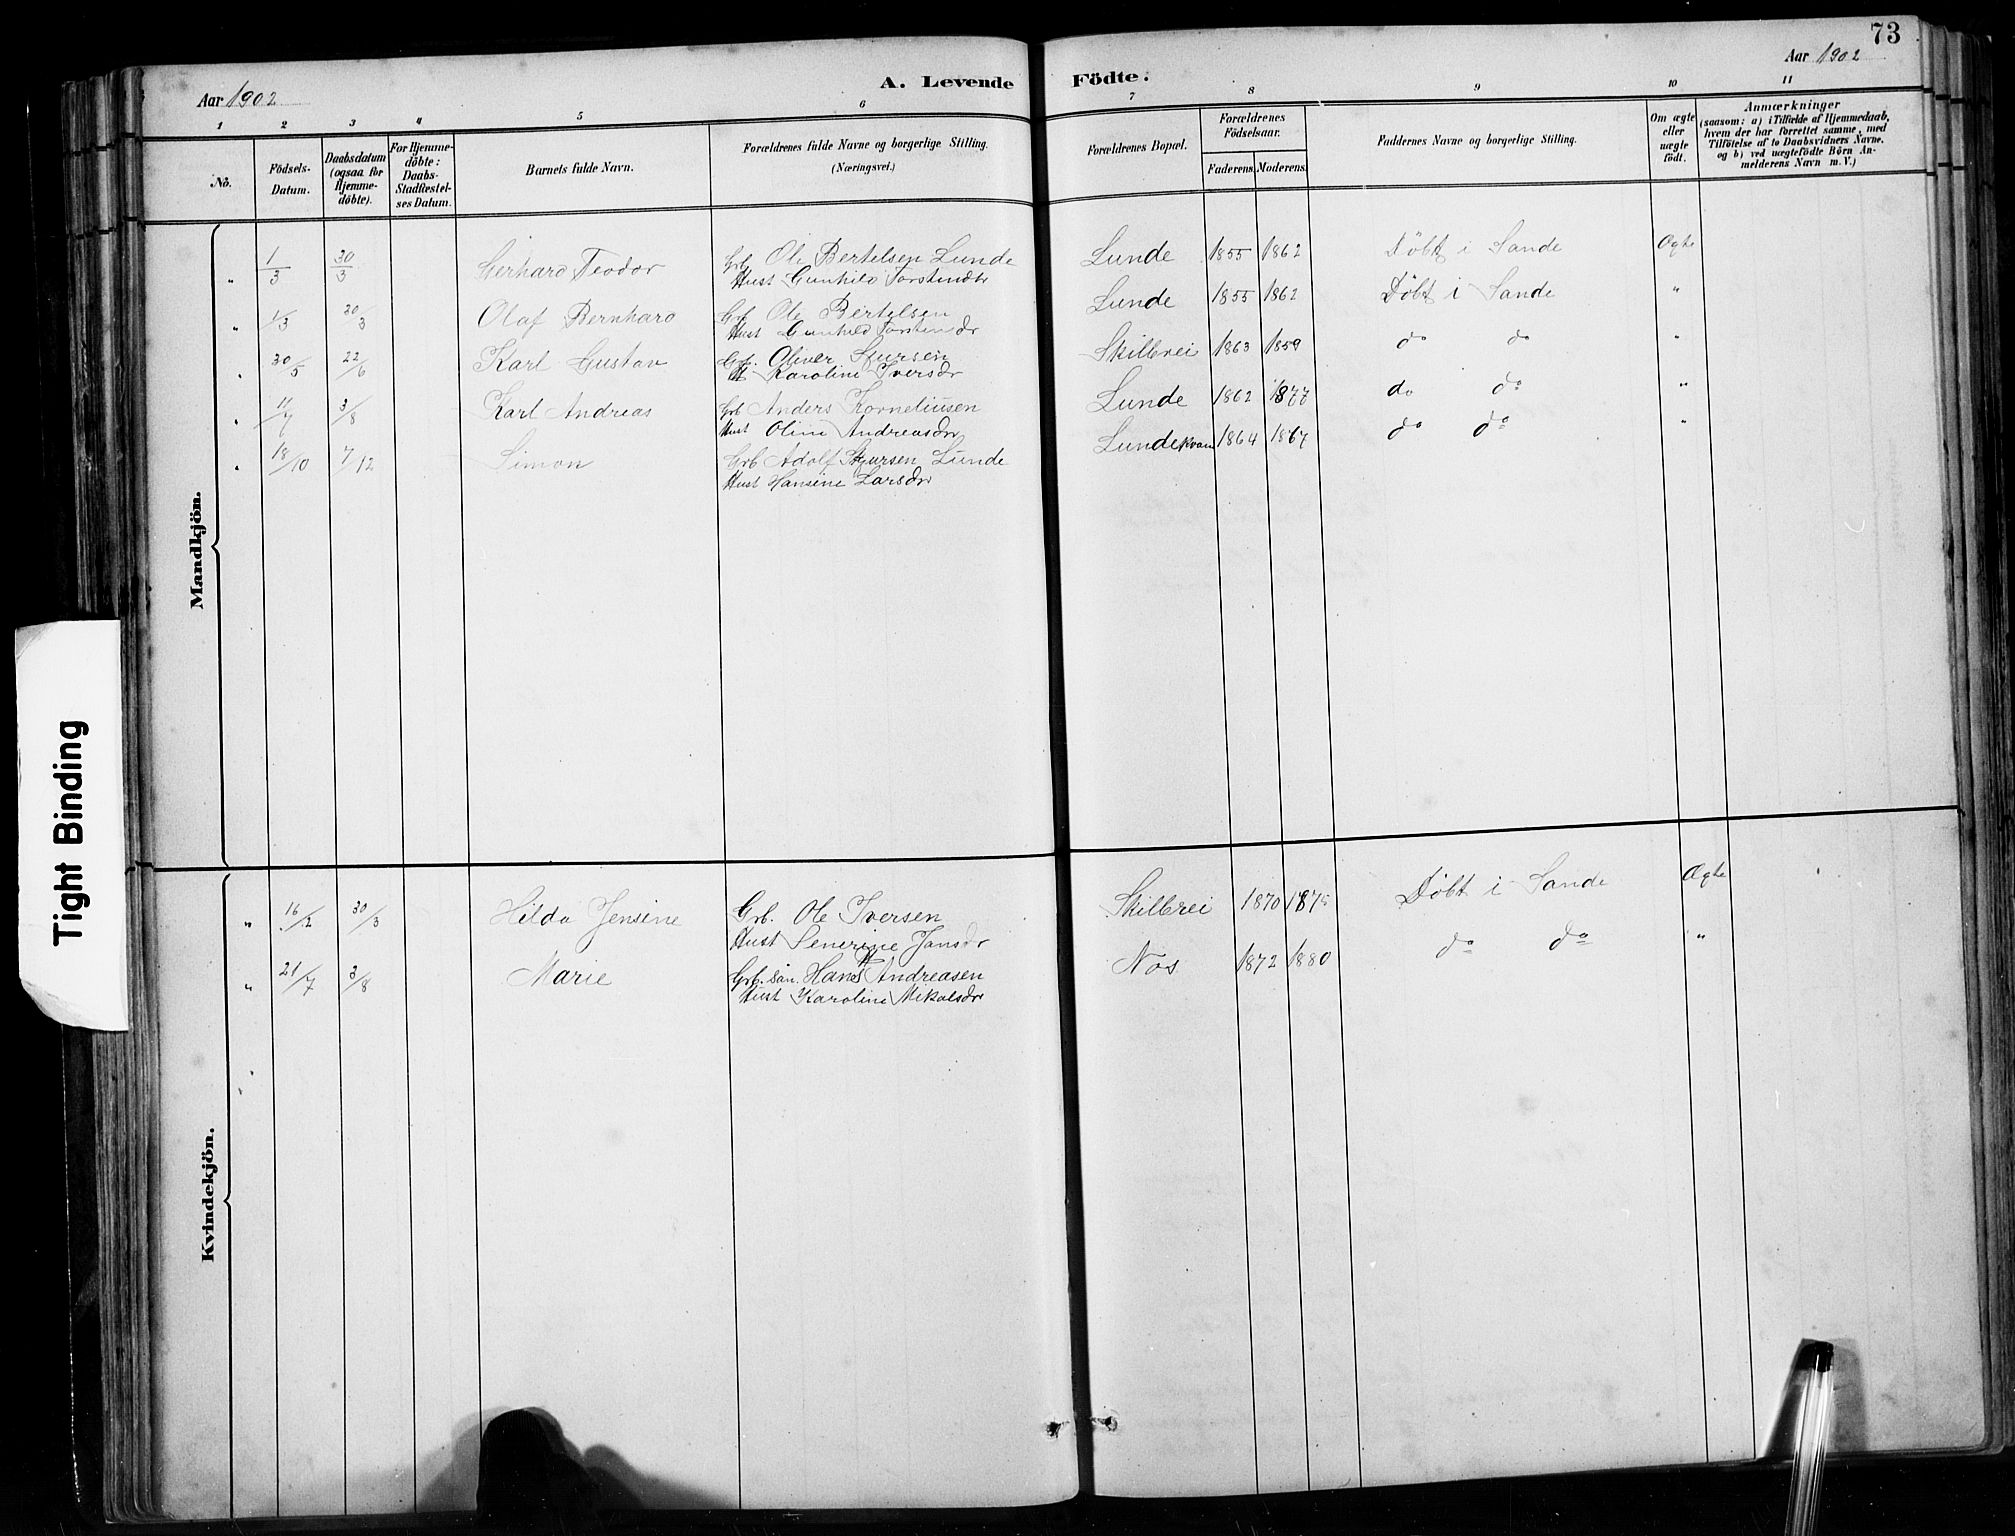 73
Aar 1902
A. Levende Födte.
Aar 1902
1 2 3 4 5 6 7 8 9 10 11
No.
Födsels-Datum.
Daabsdatum (ogsaa for Hjemmedöbte).
For Hjemmedöbte: Daabs-Stadfæstelses Datum.
Barnets fulde Navn.
Forældrenes fulde Navne og borgerlige Stilling.
(Næringsvei.)
Forældrenes Bopæl.
Forældrenes Födselsaar.
Faderens. Moderens.
Faddernes Navne og borgerlige Stilling.
Om ægte eller uægte födt.
Anmærkninger
(saasom: a) i Tilfælde af Hjemmedaab, hvem der har forrettet samme, med Tilföielse af to Daabsvidners Navne, og b) ved uægtefödte Börn Anmelderens Navn m. V.)
Mandkjön.
" 1/3 30/3 Gerhard Teodor Grb Ole Bertelsen Lunde Lunde 1855 1862 Döbt i Sande Ægte
Hust Gunhild Torstendtr
" 1/3 30/3 Olaf Bernhard Grb Ole Bertelsen Lunde 1855 1862 Döbt i Sande "
Hust Gunhild Torstensdr
" 30/5 22/6 Karl Gustav Grb. Oliver Sjursen Skilbrei 1863 1859 do do "
H Karoline Iversdr
" 11/7 3/8 Karl Andreas Grb Anders Korneliusen Lunde 1862 1877 do do "
Hust Oline Andreasdr
" 18/10 7/12 Simon Grb Adolf Sjursen Lunde Lundekvam 1864 1867 do do "
Hust Hansine Larsdr
Kvindekjön.
" 16/2 30/3 Hilda Jensine Grb. Ole Iversen Skilbrei 1870 1875 Döbt i Sande Ægte
Hust Senerine Jansdr
" 21/7 3/8 Marie Grb. sön. Hans Andreasen Nos 1872 1880 do do "
Hust Karoline Mikalsdr
Tight Binding